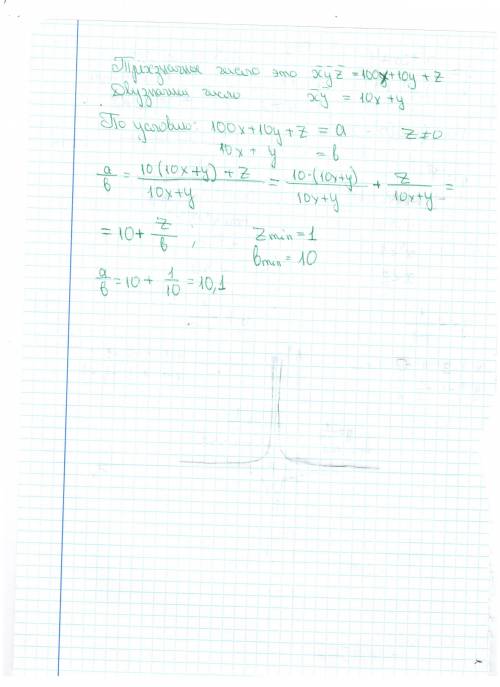 Трехзначное число это x̄ȳz̄ = 100x+10y+z
Двузначн число x̄y = 10x+y
По условию: 100x+10y+z = a z≠0
10x + y = b
a/b = (10(10x+y)+z)/(10x+y) = (10·(10x+y))/(10x+y) + z/(10x+y) =
= 10+ z/b ; zmin=1
bmin=10
a/b = 10 + 1/10 = 10,1